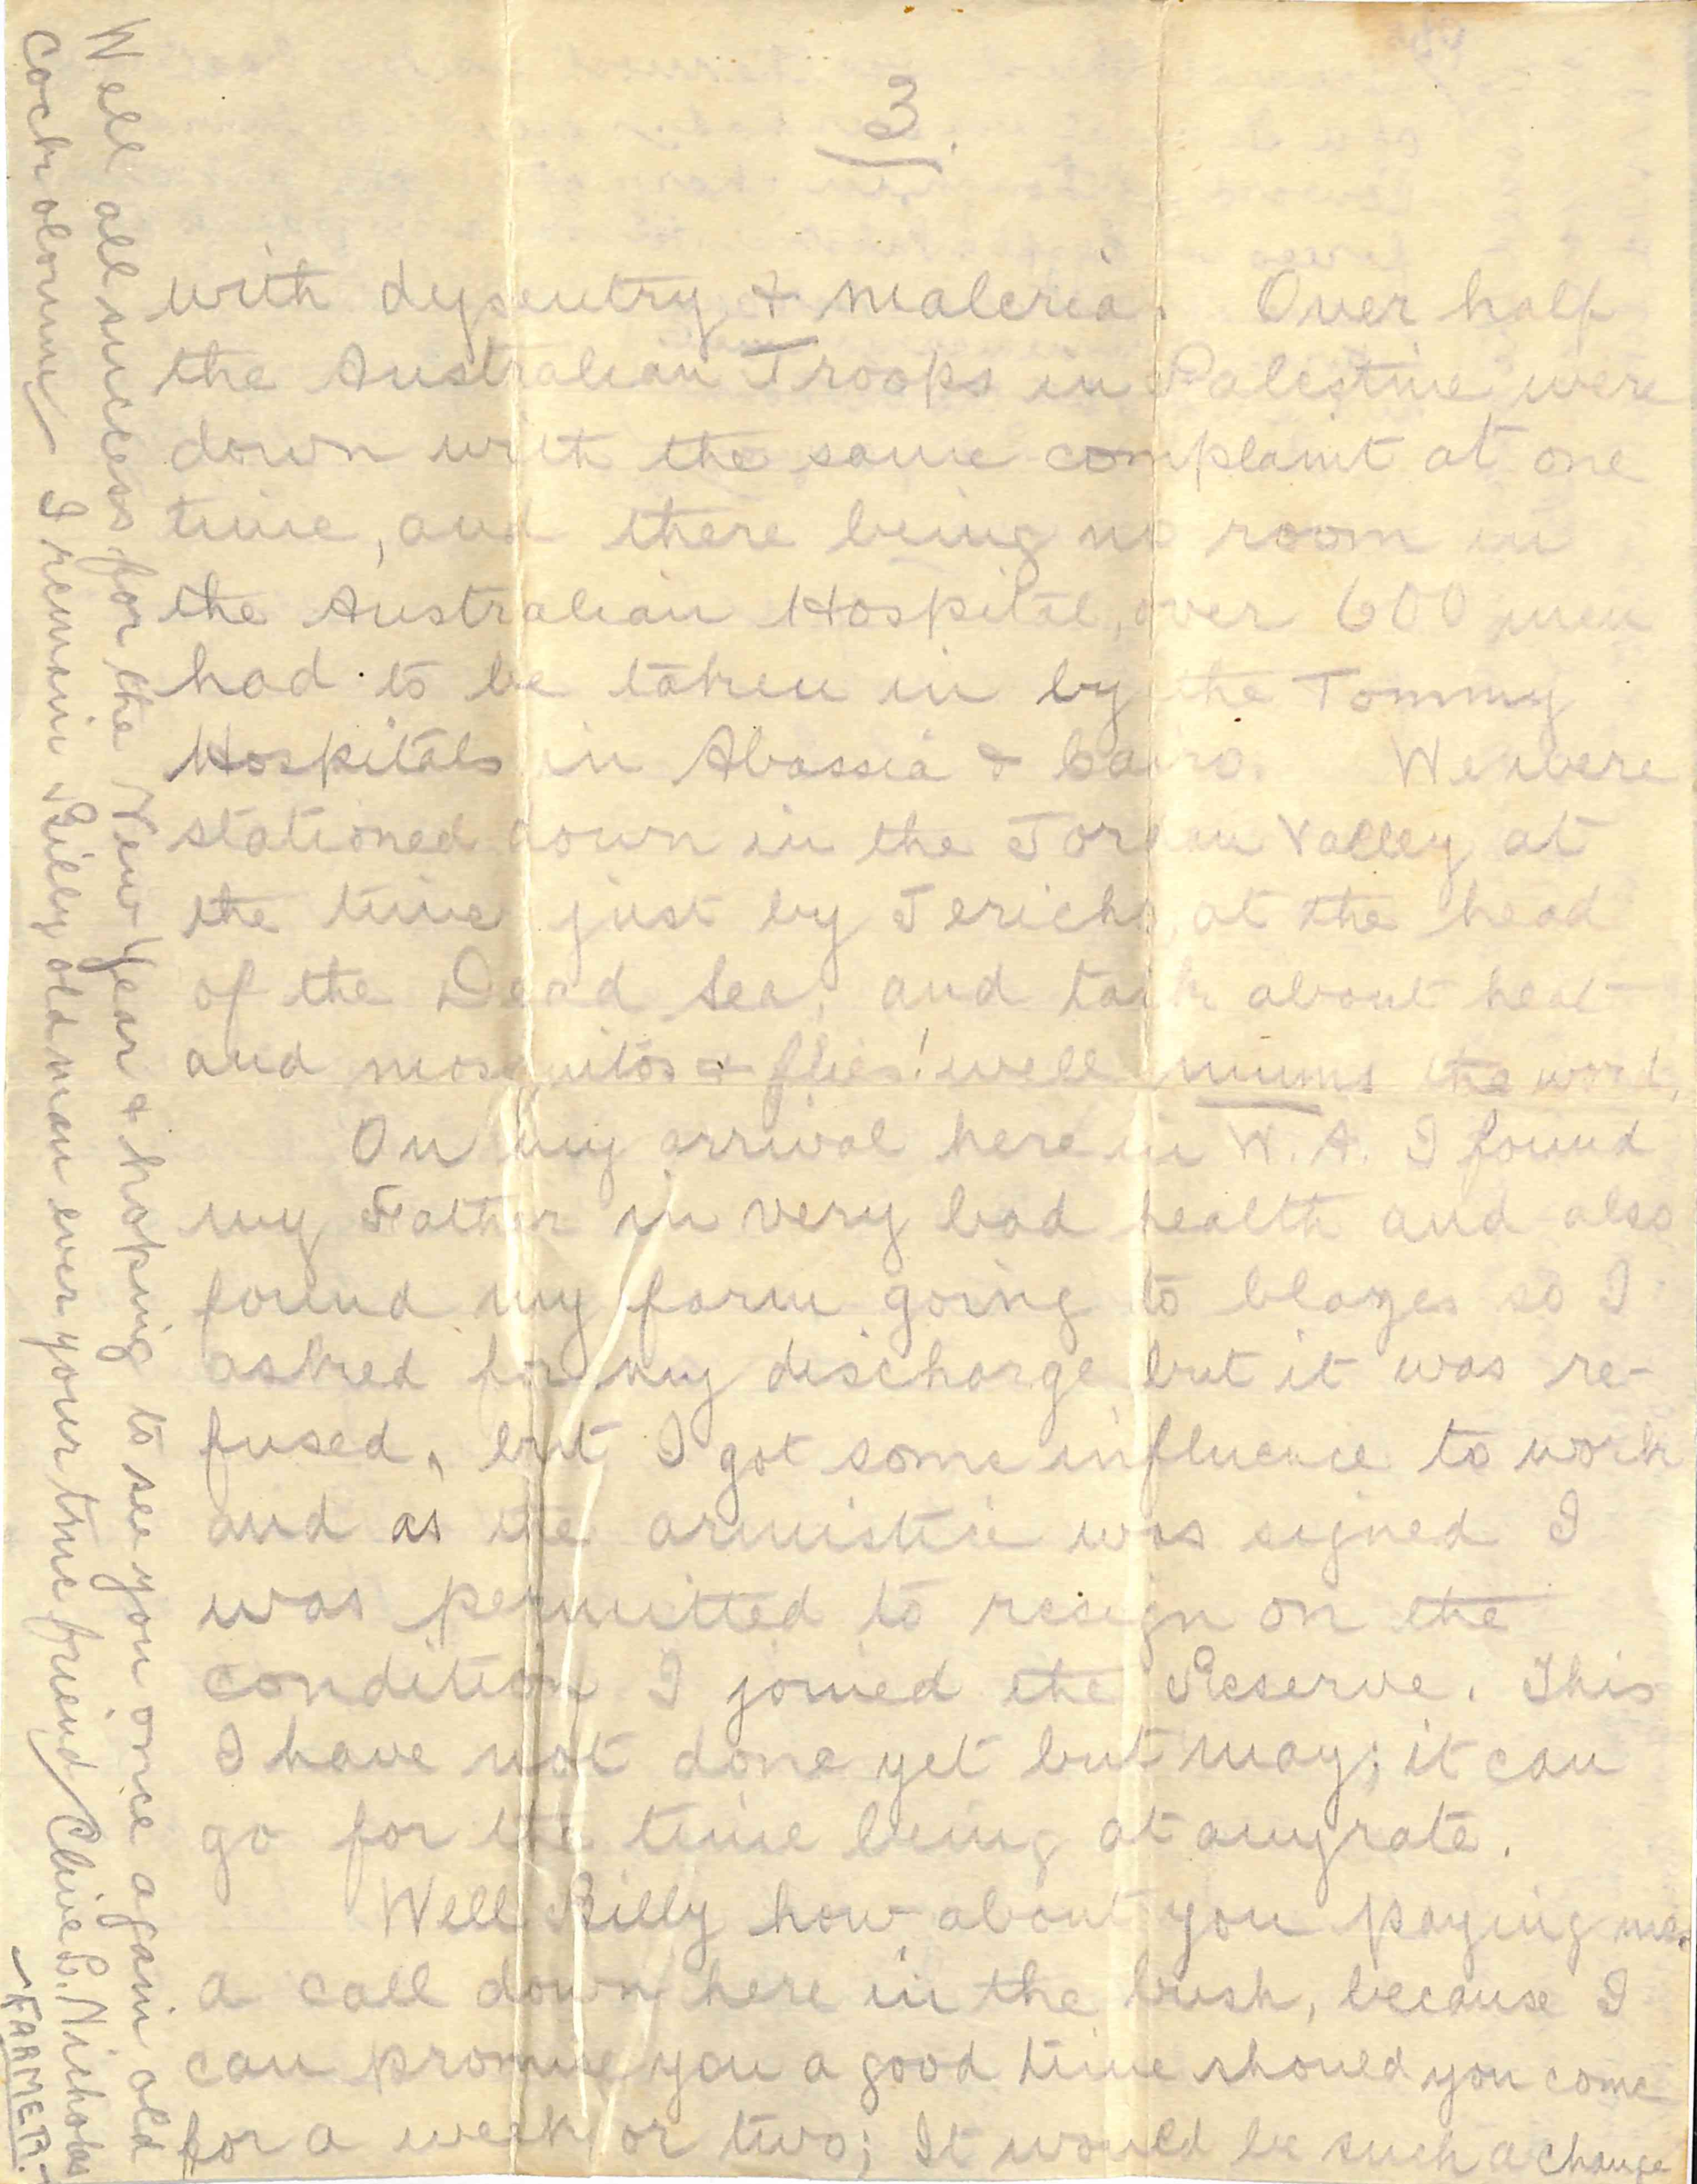 3.
with dysentry & maleria. Over half
the Australian Troops in Palestine were
down with the same complaint at one
time, and there being no room in
the Australian Hospital, over 600 men
had to be taken in by the Tommy
Hospitals in Abassia & Cairo. We were
stationed down in the Jordan Valley at
the time just by Jericho, at the head
of the Dead Sea, and talk about heat
and mosquitos & flies! well mums the word.
On my arrival here in W.A. I found
my Father in very bad health and also
found my farm going to blazes so I
asked for my discharge but it was re-
fused, but I got some influence to work
and as the armistice was signed I
was permitted to resign on the
condition I joined the Reserve. This
I have not done yet but may; it can
go for the time being at anyrate.
Well Billy how about you paying me
a call down here in the bush, because I
can promise you a good time should you come
for a week or two; It would be such a change
Well all success for the New Year & hoping to see you once again old
cock I remain Billy old man ever your true friend Clive L. Nicholas
FARMER.